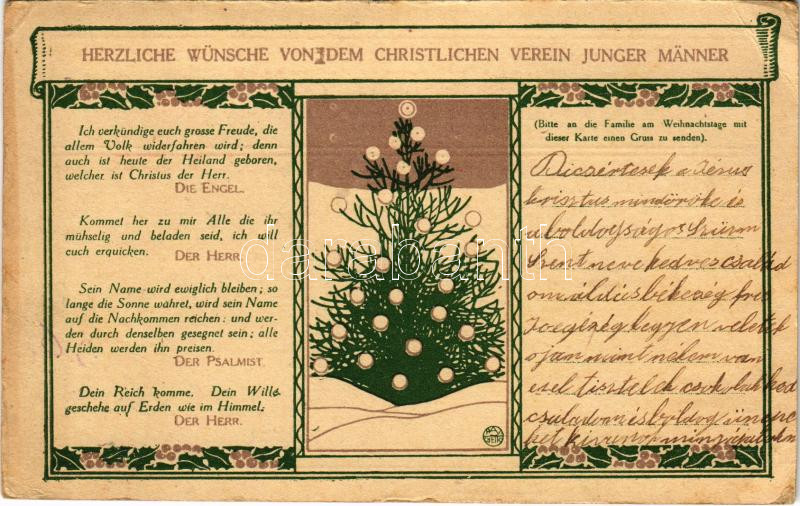 HERZLICHE WÜNSCHE VON DEM CHRISTLICHEN VEREIN JUNGER MÄNNER
Ich verkündige euch grosse Freude, die
allem Volk widerfahren wird; denn
auch ist heute der Heiland geboren,
welcher ist Christus der Herr.
DIE ENGEL.
Kommet her zu mir Alle die ihr
mühselig und beladen seid, ich will
euch erquicken.
DER HERR.
Sein Name wird ewiglich bleiben; so
lange die Sonne währet, wird sein Name
auf die Nachkommen reichen: und wer-
den durch denselben gesegnet sein; alle
Heiden werden ihn preisen.
DER PSALMIST.
Dein Reich komme. Dein Wille
geschehe auf Erden wie im Himmel.
DER HERR.
(Bitte an die Familie am Weihnachtstage mit
dieser Karte einen Gruss zu senden).
Dicsértesek a Jézus
krisztus mindöröke és
aboldogságos Szürm
Szent neve kedves család
om áldás békeség
legyen veletek
ojan mint nálem van
csokolak
családom és boldog ünne
ket kivanok
darabanth